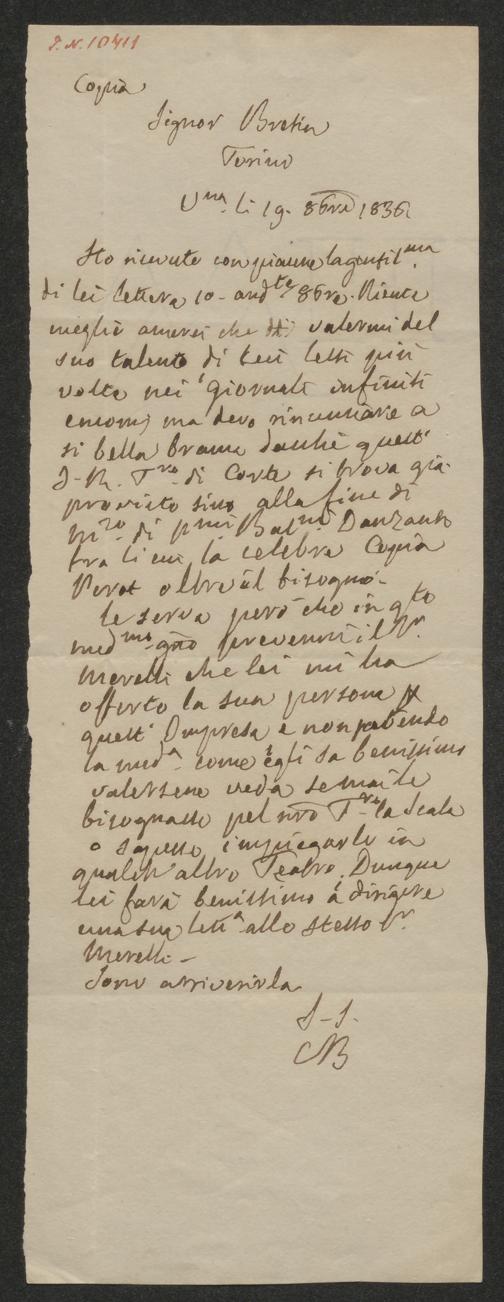 I. N. 10411
Copia
Signor Bretin
Torino
Vna li 19. 8bre 1836
Ho ricevuto con piacere la gentilma
di lei lettera 10. andte 8bre. Niente
meglio amerei che di valermi del
suo talento di cui lessi più
volte nei giornali infiniti
encomj ma devo rinunciare a
si bella brama dachè quest'
I. R. Tro di Corte si trova già
provisto sino alla fine di
Mzo di pmi Balni Danzanti
tra li cui la celebre Copia
Perot oltre il bisogno.
Le serva però che in qto
medmo gno prevenni il Sr.
Merelli che lei mi ha
offerto la sua persona p
quest' Impresa e non potendo
la meda come egli sa benissimo
valersene veda se mai le
bisognasse pel nro Tro la Scala
o sapesse impiegarlo in
qualch' altro Teatro. Dunque
lei farà benissimo à dirigere
una sua letta allo stesso Sr.
Merelli -
Sono a riverirla
S. S.
CB